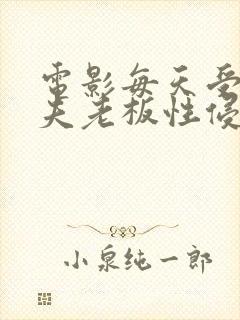 電影每天受
夫老板性侵
小泉纯一郎